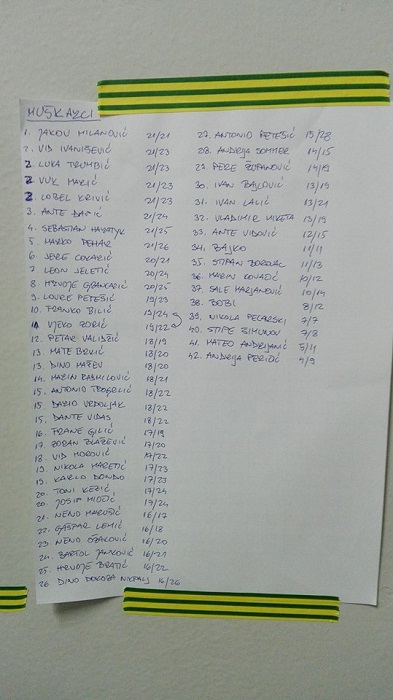 MUŠKARCI
1. JAKOV MILANOVIĆ 21/21
2. VID IVANIŠEVIĆ 21/23
2 LUKA TRUMBIĆ 21/23
2 VUK MARIĆ 21/23
2 LOBEL KRIVIĆ 21/23
3. ANTE 21/24
4. SEBASTIAN 21/25
5. MARKO PEHAR 21/26
6. JERE COKARIĆ 20/21
7. LEON JELETIĆ 20/24
8 HRVOJE GRANČARIĆ 20/25
9. LOVRE PETEŠIĆ 19/23
10. FRANKO BILIĆ 19/24
11 VJEKO ZORIĆ 19/22
12. PETAR VALIDŽIĆ 18/19
13. MATE BRKIĆ 18/20
13. DINO MAŽEV 18/20
14. MARIN RADMILOVIĆ 18/21
15. ANTONIO TROGRLIĆ 18/22
15. DARIO VRDOLJAK 18/22
15. DANTE VIDAS 18/22
16. FRANE GILIĆ 17/19
17. ZORAN BLAŽEVIĆ 17/20
18. VID MOROVIĆ 17/22
19. NIKOLA MARETIĆ 17/23
19. KARLO DONDO 17/23
20. TONI KEZIĆ 17/24
20. JOSIP 17/24
21. NENO MARUŠIĆ 16/17
22. GAŠPAR LEMIĆ 16/18
23. NENO 16/20
24. BARTOL JANKOVIĆ 16/21
25. HRVOJE BRATIĆ 16/22
26. DINO DOKOZA NIKPALJ 16/26
27. ANTONIO PETEŠIĆ 15/28
28. ANDRIJA SOMMER 14/15
29. PERE ŽUPANOVIĆ 14/19
30. IVAN BAJLOVIĆ 13/19
31. IVAN LALIĆ 13/21
32. VLADIMIR MIKETA 13/19
33. ANTE VIDOVIĆ 12/15
34. BAJKO 11/11
35. STIPAN BOROVAC 11/13
36. MARIN KOVAČIĆ 10/12
37. SALE MARJANOVIĆ 10/14
38. BOBI 8/12
39. NIKOLA PECARSKI 7/7
40. STIPE ZIMUNOV 7/8
41. MATEO ANDRIJANIĆ 5/11
42. ANDRIJA PERIŠIĆ 4/9